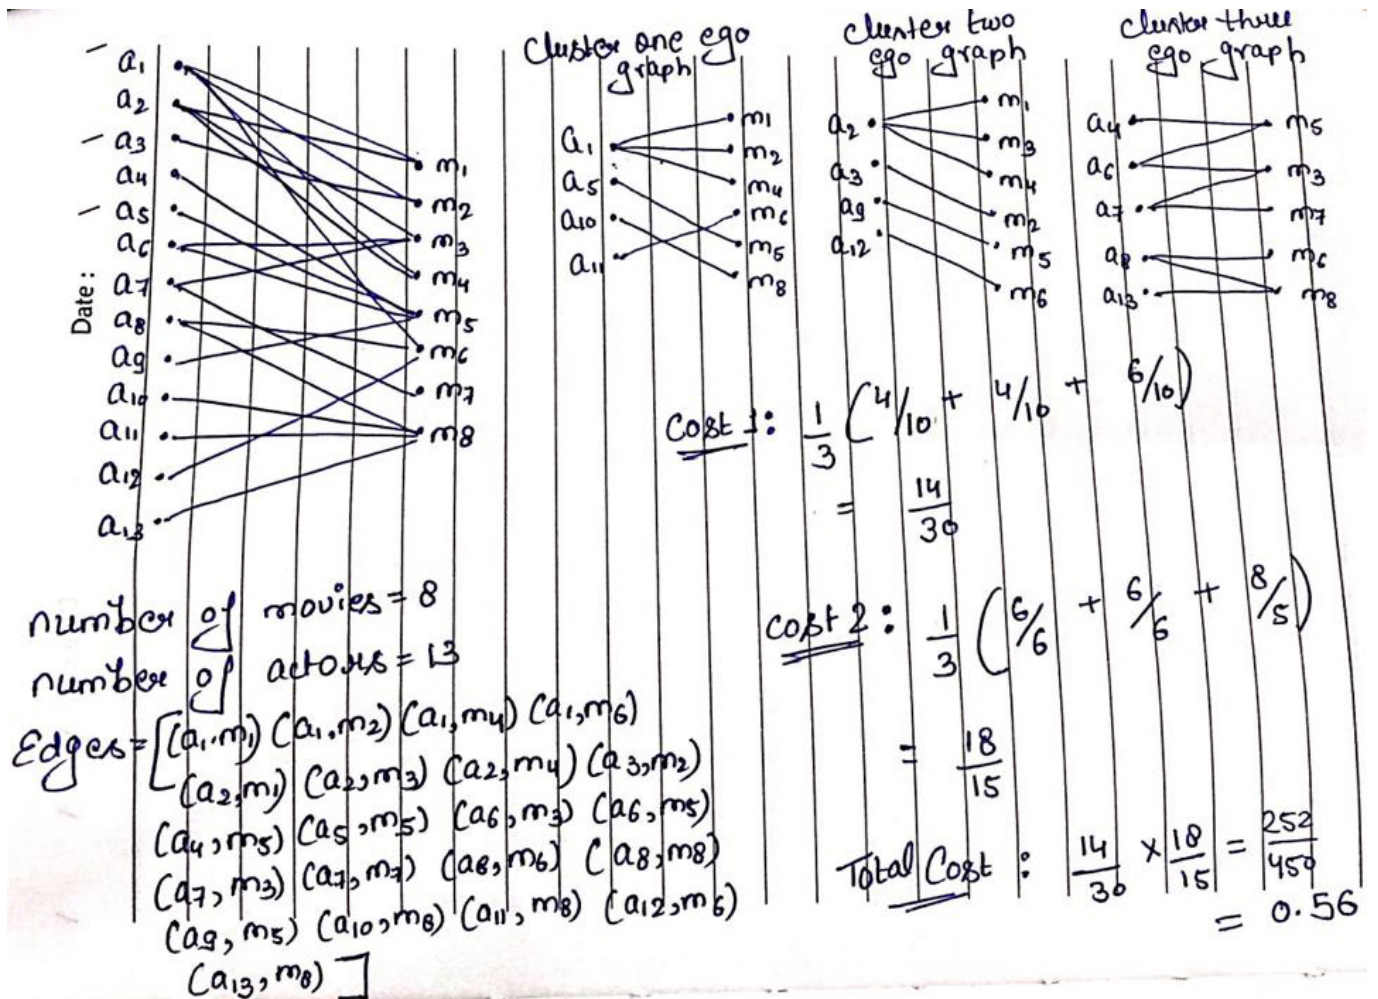 Date:
a1
a2
a3
a4
a5
a6
a7
a8
a9
a10
a11
a12
a13
m1
m2
m3
m4
m5
m6
m7
m8
Cluster one ego
graph
a1
a5
a10
a11
m1
m2
m4
m6
m5
m8
cluster two
ego graph
a2
a3
a9
a12
m1
m3
m4
m2
m5
m6
cluster three
ego graph
a4
a6
a7
a8
a13
m5
m3
m7
m6
m8
Cost 1: 1/3 (4/10 + 4/10 + 6/10)
= 14/30
cost 2: 1/3 (6/6 + 6/6 + 8/5)
= 18/15
Total Cost: 14/30 × 18/15 = 252/450
= 0.56
number of movies = 8
number of actors = 13
Edges = [(a1,m1) (a1,m2) (a1,m4) (a1,m6)
(a2,m1) (a2,m3) (a2,m4) (a3,m2)
(a4,m5) (a5,m5) (a6,m3) (a6,m5)
(a7,m3) (a7,m7) (a8,m6) (a8,m8)
(a9,m5) (a10,m8) (a11,m8) (a12,m6)
(a13,m8)]